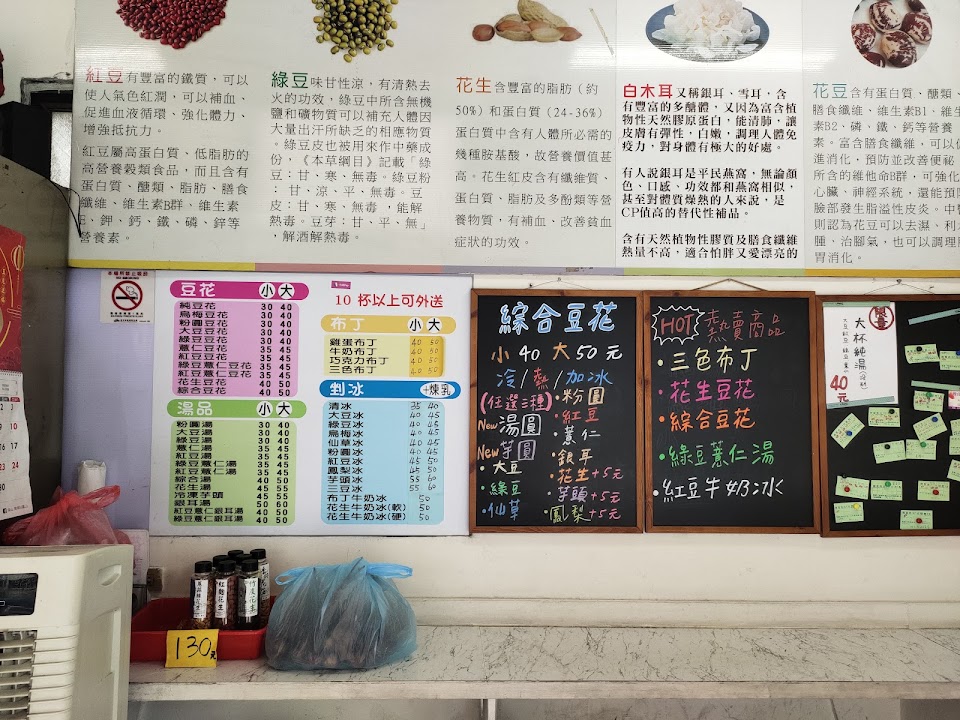 紅豆 有豐富的鐵質，可以
使人氣色紅潤，可以補血、
促進血液循環、強化體力、
增強抵抗力。
紅豆屬高蛋白質、低脂肪的
高營養穀類食品，而且含有
蛋白質、醣類、脂肪、膳食
纖維、維生素B群、維生素
E、鉀、鈣、鐵、磷、鋅等
營養素。
綠豆 味甘性涼，有清熱去
火的功效，綠豆中所含無機
鹽和礦物質可以補充人體因
大量出汗所缺乏的相應物質
。綠豆皮也被用來作中藥成
份，《本草綱目》記載「綠
豆：甘、寒、無毒。綠豆粉
：甘，涼、平、無毒。豆
皮：甘、寒、無毒，能解
熱毒。豆芽：甘、平、無毒」
，解酒解熱毒。
花生 含豐富的脂肪（約
50%）和蛋白質（24-36%）
蛋白質中含有人體所必需的
幾種胺基酸，故營養價值甚
高。花生紅皮含有纖維質、
蛋白質、脂肪及多酚類等營
養物質，有補血、改善貧血
症狀的功效。
白木耳 又稱銀耳、雪耳，含
有豐富的多醣體，又因為富含植
物性天然膠原蛋白，能清肺，讓
皮膚有彈性，白嫩，調理人體免
疫力，對身體有極大的好處。
有人說銀耳是平民燕窩，無論顏
色、口感、功效都和燕窩相似，
甚至對體質燥熱的人來說，是
CP值高的替代性補品。
含有天然植物性膠質及膳食纖維
熱量不高，適合怕胖又愛漂亮的
花豆 含有蛋白質、醣類、
膳食纖維、維生素B1、維生
素B2、磷、鐵、鈣等營養
素。富含膳食纖維，可以促
進消化，預防並改善便祕
所含的維他命B群，可強化
心臟、神經系統，還能預防
臉部發生脂溢性皮炎。中醫
則認為花豆可以去濕、利水
腫，治腳氣，也可以調理腸
胃消化。
豆花 小 大
純豆花 30 40
烏梅豆花 30 40
粉圓豆花 30 40
大豆豆花 30 40
綠豆豆花 30 40
薏仁豆花 35 45
紅豆豆花 35 45
綠豆薏仁豆花 35 45
紅豆薏仁豆花 35 45
花生豆花 40 50
綜合豆花 40 50
湯品 小 大
粉圓湯 30 40
大豆湯 30 40
綠豆湯 30 40
薏仁湯 35 45
紅豆湯 35 45
綠豆薏仁湯 35 45
紅豆薏仁湯 35 45
綜合湯 40 50
花生湯 45 55
冷凍芋頭 45 55
銀耳湯 50 60
紅豆薏仁銀耳湯 40 50
綠豆薏仁銀耳湯 40 50
10 杯以上可外送
布丁 小 大
雞蛋布丁 40 50
牛奶布丁 40 50
巧克力布丁 40 50
三色布丁 40 50
剉冰 +煉乳
清冰 35 40
大豆冰 40 45
綠豆冰 40 45
烏梅冰 40 45
仙草冰 40 45
粉圓冰 40 45
紅豆冰 45 50
鳳梨冰 45 50
芋頭冰 55 60
三豆冰 55 60
布丁牛奶冰 50
花生牛奶冰(軟) 50
花生牛奶冰(硬) 50
綜合豆花
小 40 大 50 元
冷/熱/加冰
(任選三種)
New湯圓
New芋圓
·大豆
·綠豆
·仙草
·粉圓
·紅豆
·薏仁
·銀耳
·花生+5元
·芋頭+5元
·鳳梨+5元
HOT 熱賣商品
·三色布丁
·花生豆花
·綜合豆花
·綠豆薏仁湯
·紅豆牛奶冰
大杯純湯
40元
130元